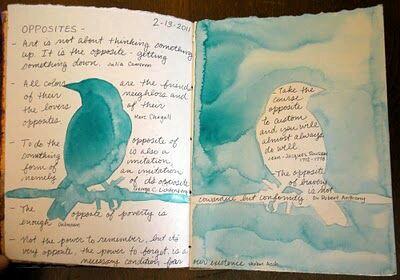 2-13-2011
OPPOSITES -
- Art is not about thinking something
up. It is the opposite - getting
something down. Julia Cameron
- All colors are the friends
of their neighbors and
the lovers of their
opposites. Marc Chagall
- To do the opposite of
something is also a
form of imitation,
namely an imitation
of its opposite.
George C. Lichtenberg
- The opposite of poverty is
enough Unknown
- Not the power to remember, but its
very opposite, the power to forget, is a
necessary condition for
Take the
course
opposite
to custom
and you will
almost always
do well.
Jean-Jacques Rousseau
1712-1778
- The opposite
of bravery
is not
cowardice but conformity. Dr Robert Anthony
our existence. Sholem Asch